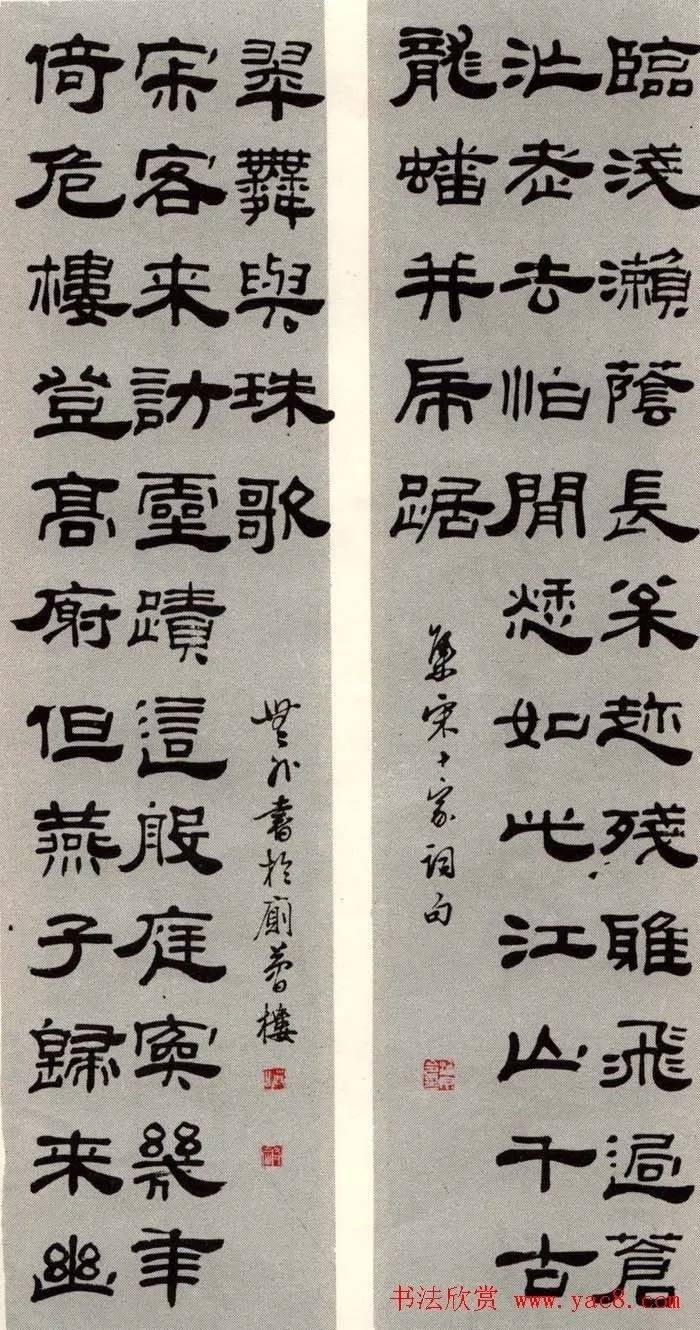 臨淺瀨蔭長松趁殘飛過蒼
茫老去怕閒愁如此江山千古
龍蟠并虎踞
集宋十家詞句
倚危樓登高但燕子歸來幽
寂客來訪靈蹟這般庭寏幾年
翠舞與珠歌
書於樓
书法欣赏 www.yac8.com